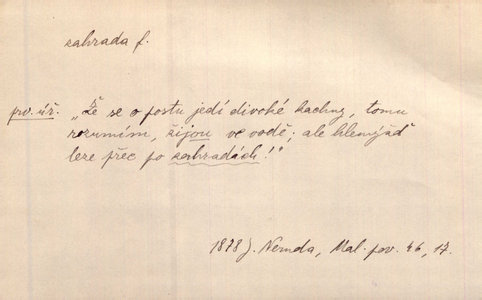 zahrada f.
prv. úř. „Že se o postu jedí divoké kachny, tomu
rozumím, žijou ve vodě; ale hlemýžď
leze přec po zahradách!"
1878 J. Neruda, Mal. pov. 46, 17.